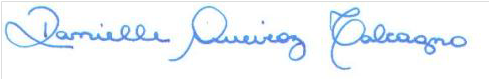 Danielle Queiroz Calcagno